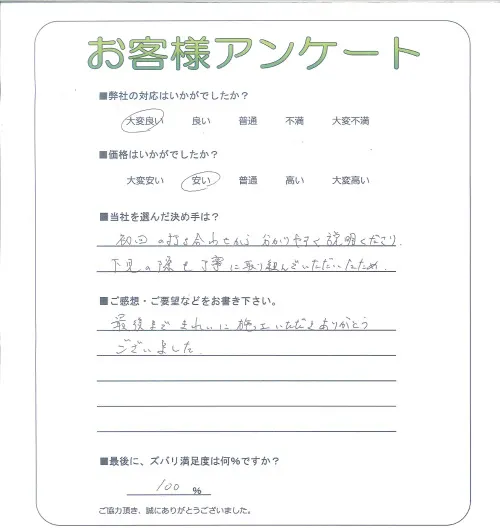 お客様アンケート
■弊社の対応はいかがでしたか？
大変良い 良い 普通 不満 大変不満
■価格はいかがでしたか？
大変安い 安い 普通 高い 大変高い
■当社を選んだ決め手は？
初回の打ち合わせから分かりやすく説明くださり、
下見の際も丁寧に取り組んでいただいたため。
■ご感想・ご要望などをお書き下さい。
最後まできれいに施工いただきありがとう
ございました。
■最後に、ズバリ満足度は何%ですか？
100 %
ご協力頂き、誠にありがとうございました。